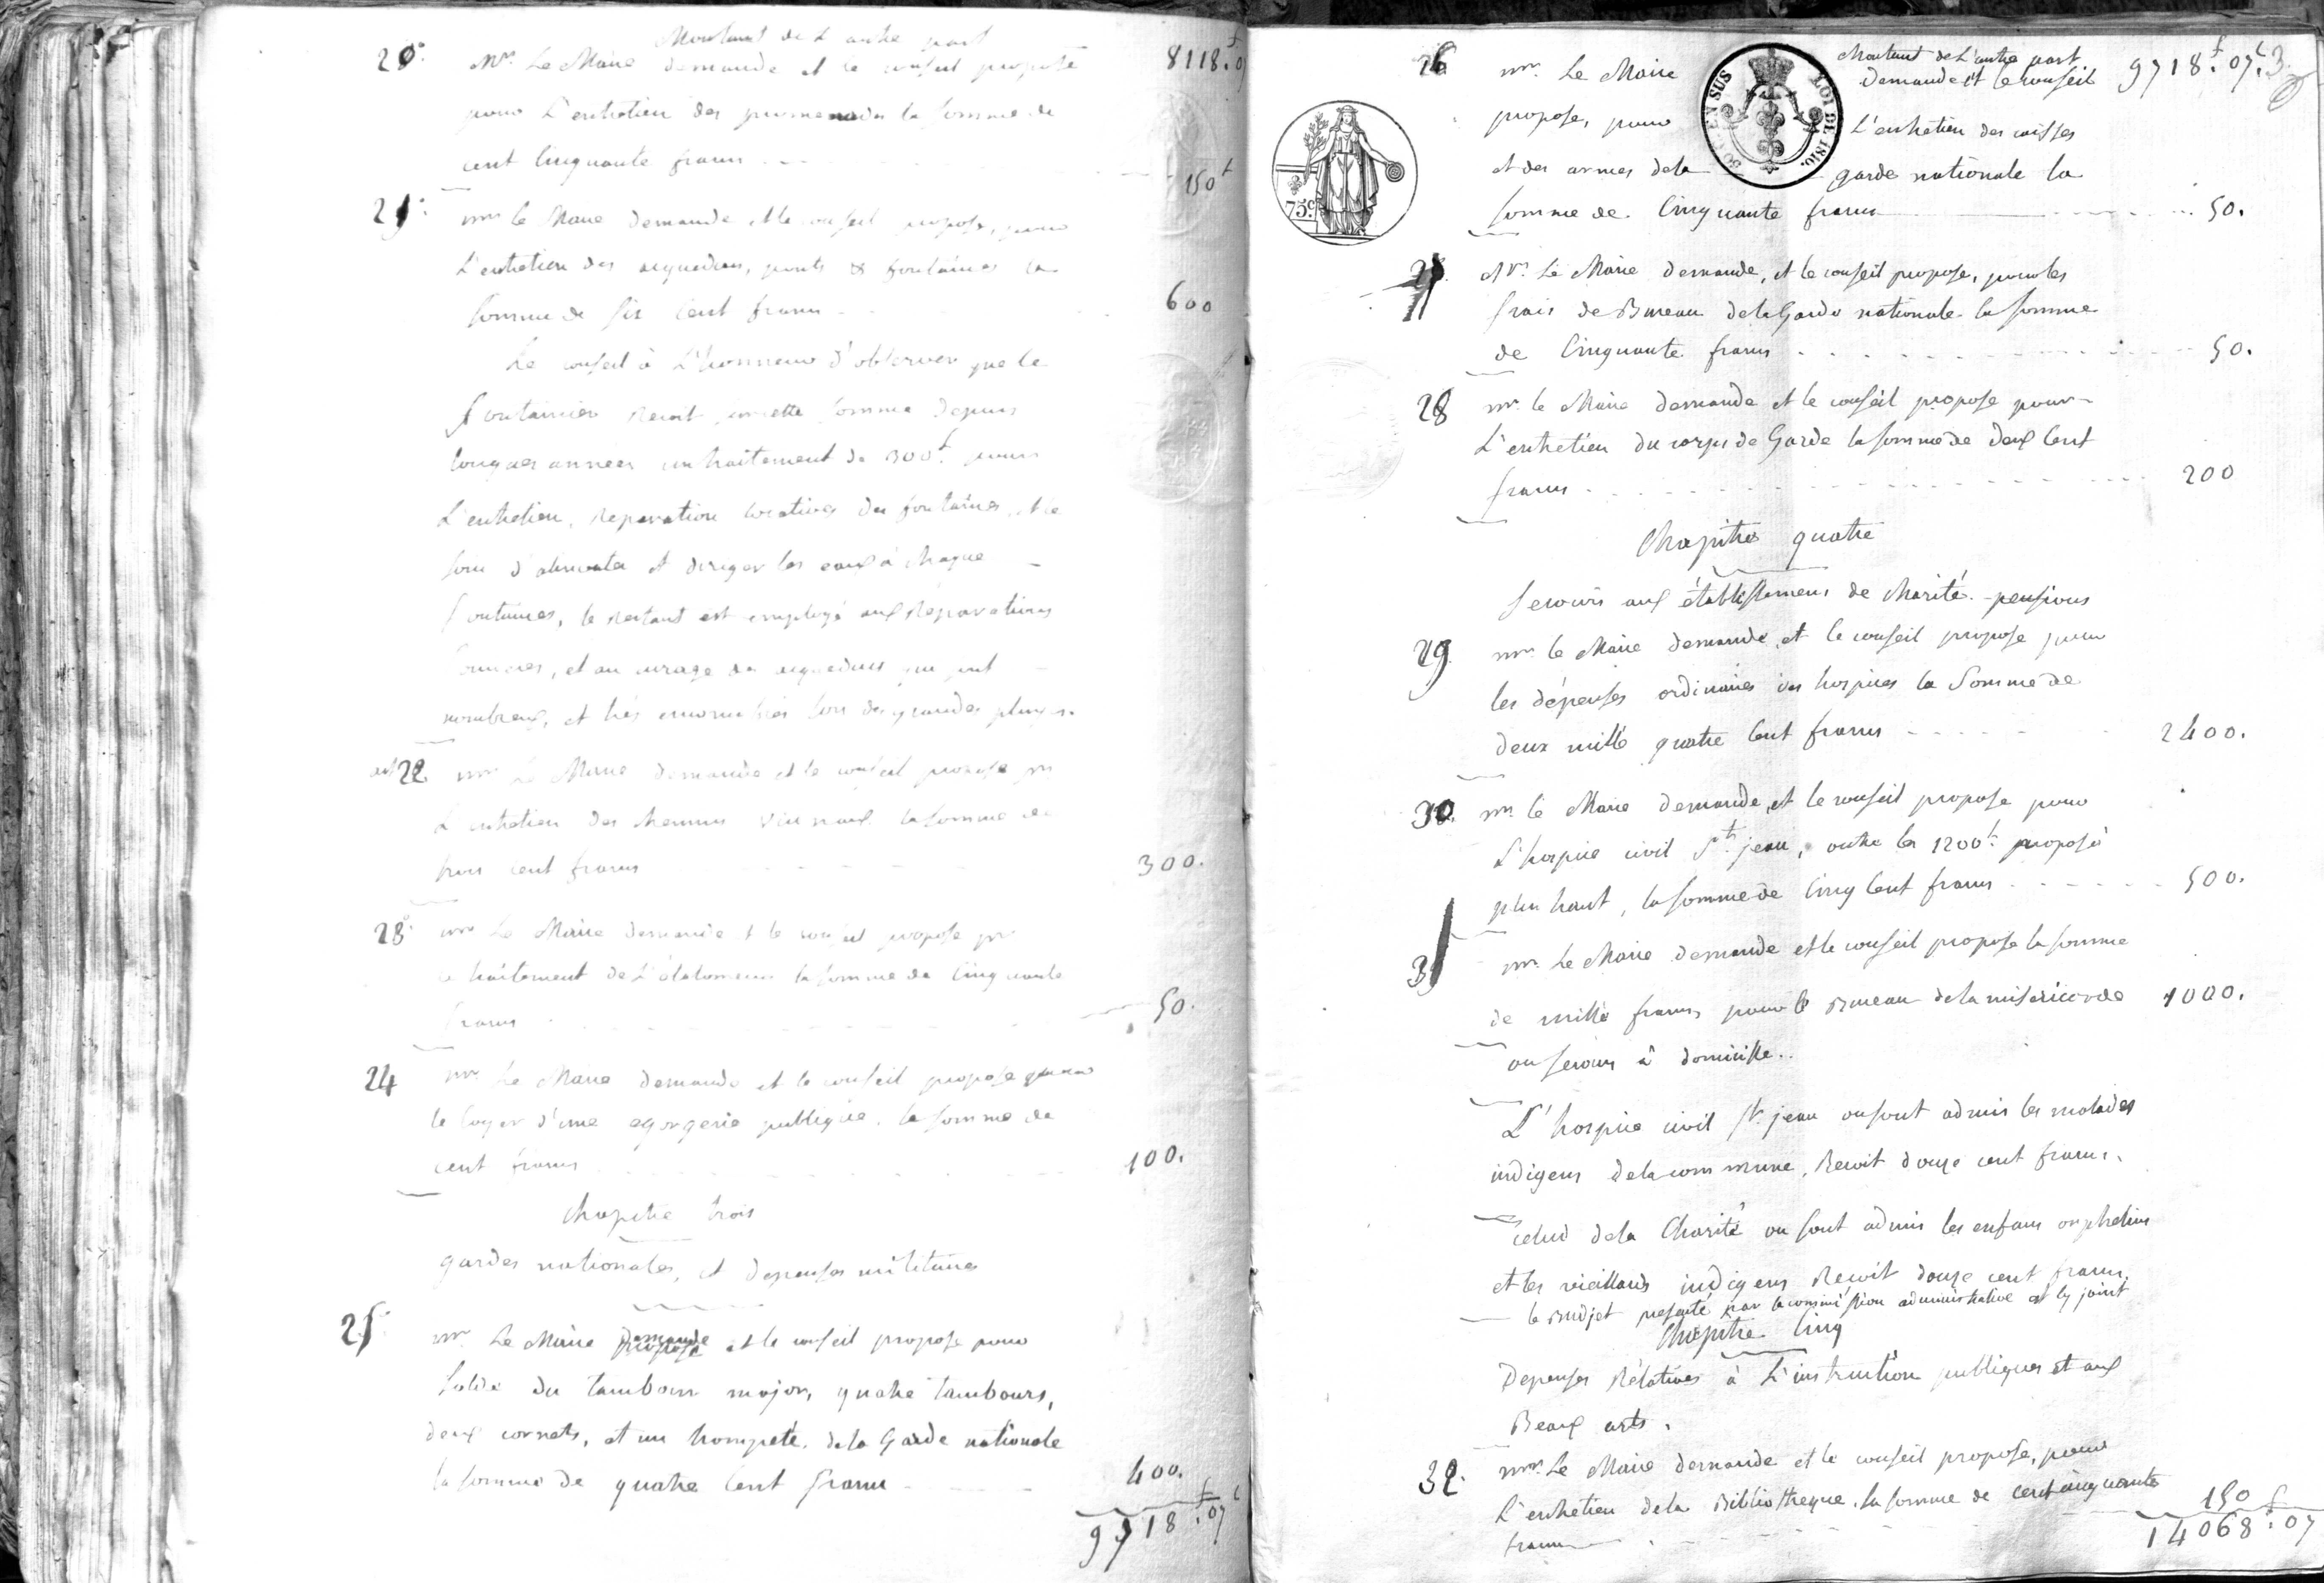 Montant de L'autre part
20° Mr. Le Maire demande et le conseil propose 8118.f 07
pour L'entretien des promenades la somme de
cent Cinquante francs 150f
21° mr. le Maire demande et le conseil propose, pour
L'entretien des aqueducs, ponts & fontaines la
somme de six Cent francs 600
Le conseil à L'honneur d'observer que le
fontainier Recoit sur cette somme depuis
longues années un traitement de 300f. pour
L'entretien, Reparation locatives des fontaines, et le
soin d'alimenter et diriger les eaux à chaque
fontaines, le Restant est employé aux Réparations
, et au curage des aqueducs qui sont
nombreux, et très lors des grandes pluyes.
art 22. mr Le Maire demande et le conseil propose pr
L'entretien des chemins vicinaux la somme de
trois cent francs 300.
23° mr Le Maire demande et le conseil propose pr
le traitement de L'étalonneur la somme de Cinquante
francs 50.
24 mr. Le Maire demande et le conseil propose pour
le loyer d'une egorgerie publique, la somme de
cent francs 100.
Chapitre trois
gardes nationales, et depenses militaires
25° mr. Le Maire demande et le conseil propose pour
Solde du tambour major, quatre tambours,
deux cornets, et un trompete, de la Garde nationale
la somme de quatre Cent francs 400.
9718f.07c
Montant de L'autre part
26 mr. Le Maire demande et le conseil 9718f.07c. 3
propose, pour L'entretien des caisses
et des armes de la garde nationale la
somme de Cinquante francs 50.
50 C. EN SUS LOI DE 1816.
75.c
27. Mr. Le Maire demande, et le conseil propose, pour les
frais de Bureau de la Garde nationale la somme
de Cinquante francs 50.
28 mr. le Maire demande et le conseil propose pour
L'entretien du corps de Garde la somme de deux Cent
francs 200
Chapitre quatre
Secours aux établissemens de Charité. pensions
29. mr. le Maire demande, et le conseil propose pour
les dépenses ordinaires des hospices la Somme de
deux mille quatre Cent francs 2400.
30. mr. le Maire demande, et le conseil propose pour
L'hospice civil St. jean, outre les 1200f. proposé
plus haut, la somme de Cinq Cent francs 500.
31 mr. Le Maire demande et le conseil propose la somme
de mille francs pour le Bureau de la misericorde 1000.
ou secours à domicille..
L'hospice civil St. jean ou sont admis les malades
indigens de la commune, Recoit douze cent francs.
celui de la Charité ou sont admis les enfans orphelins
et les vieillards indigens Recoit douze cent francs.
le Budjet présenté par la commission administrative est cy joint
Chapitre Cinq
Depenses Rélatives à L'instruction publiques et aux
Beaux arts.
32. mr. Le Maire demande et le conseil propose, pour
L'entretien de la Bibliotheque, la somme de cent cinquante
francs 150
14068f.07